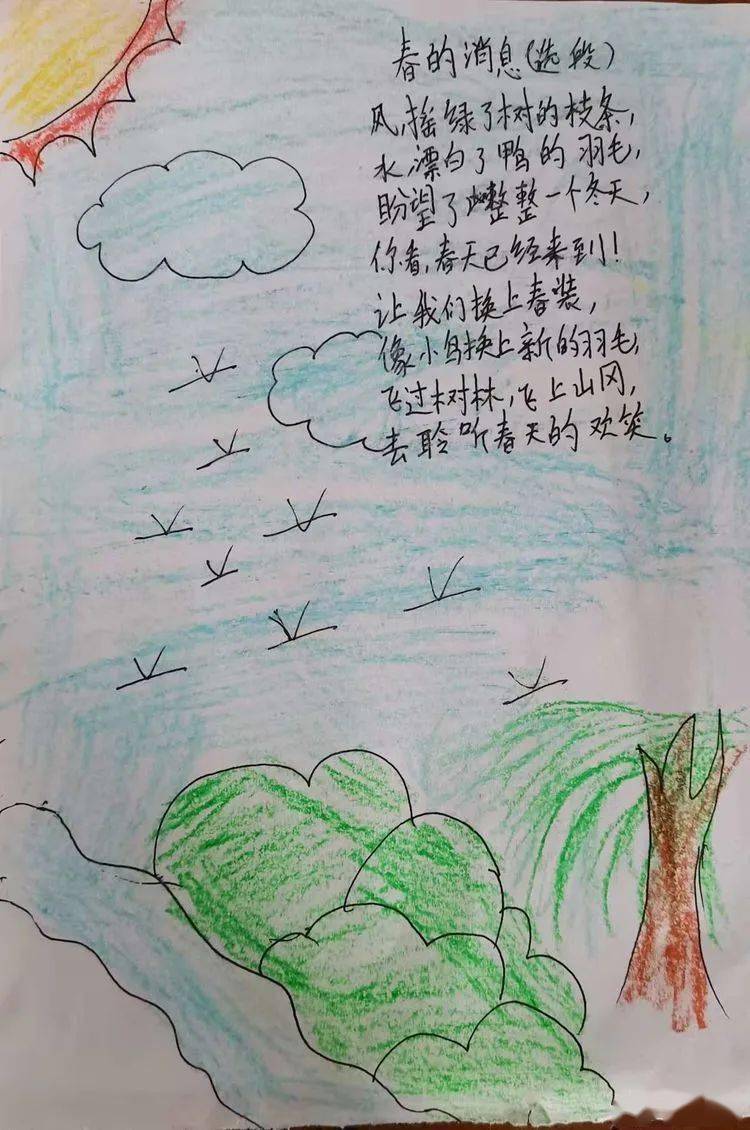 春的消息(选段)
风,摇绿了树的枝条,
水,漂白了鸭的羽毛,
盼望了整整一个冬天,
你看,春天已经来到!
让我们换上春装,
像小鸟换上新的羽毛,
飞过树林,飞上山冈,
去聆听春天的欢笑。